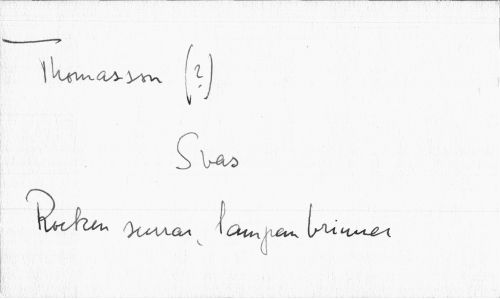 Thomasson (?)
Svas
Rocken surrar, lampan brinner